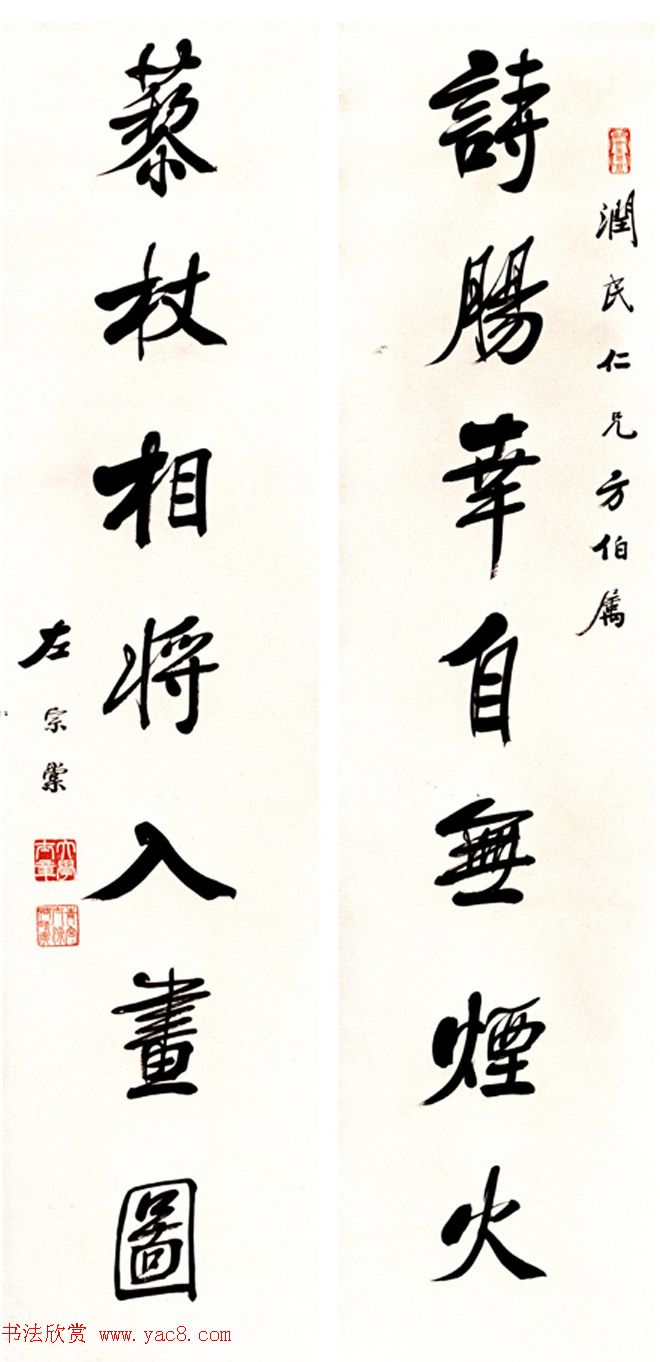 潤民仁兄方伯屬
詩腸幸自無煙火
藜杖相将入畫圖
左宗棠
大學士章
书法欣赏 www.yac8.com